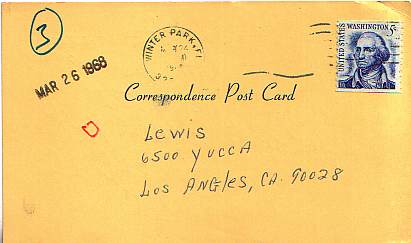 3
MAR 26 1968
WINTER PARK, FL
UNITED STATES
WASHINGTON 5¢
Correspondence Post Card
Lewis
6500 YUCCA
Los ANgleS, CA. 90028